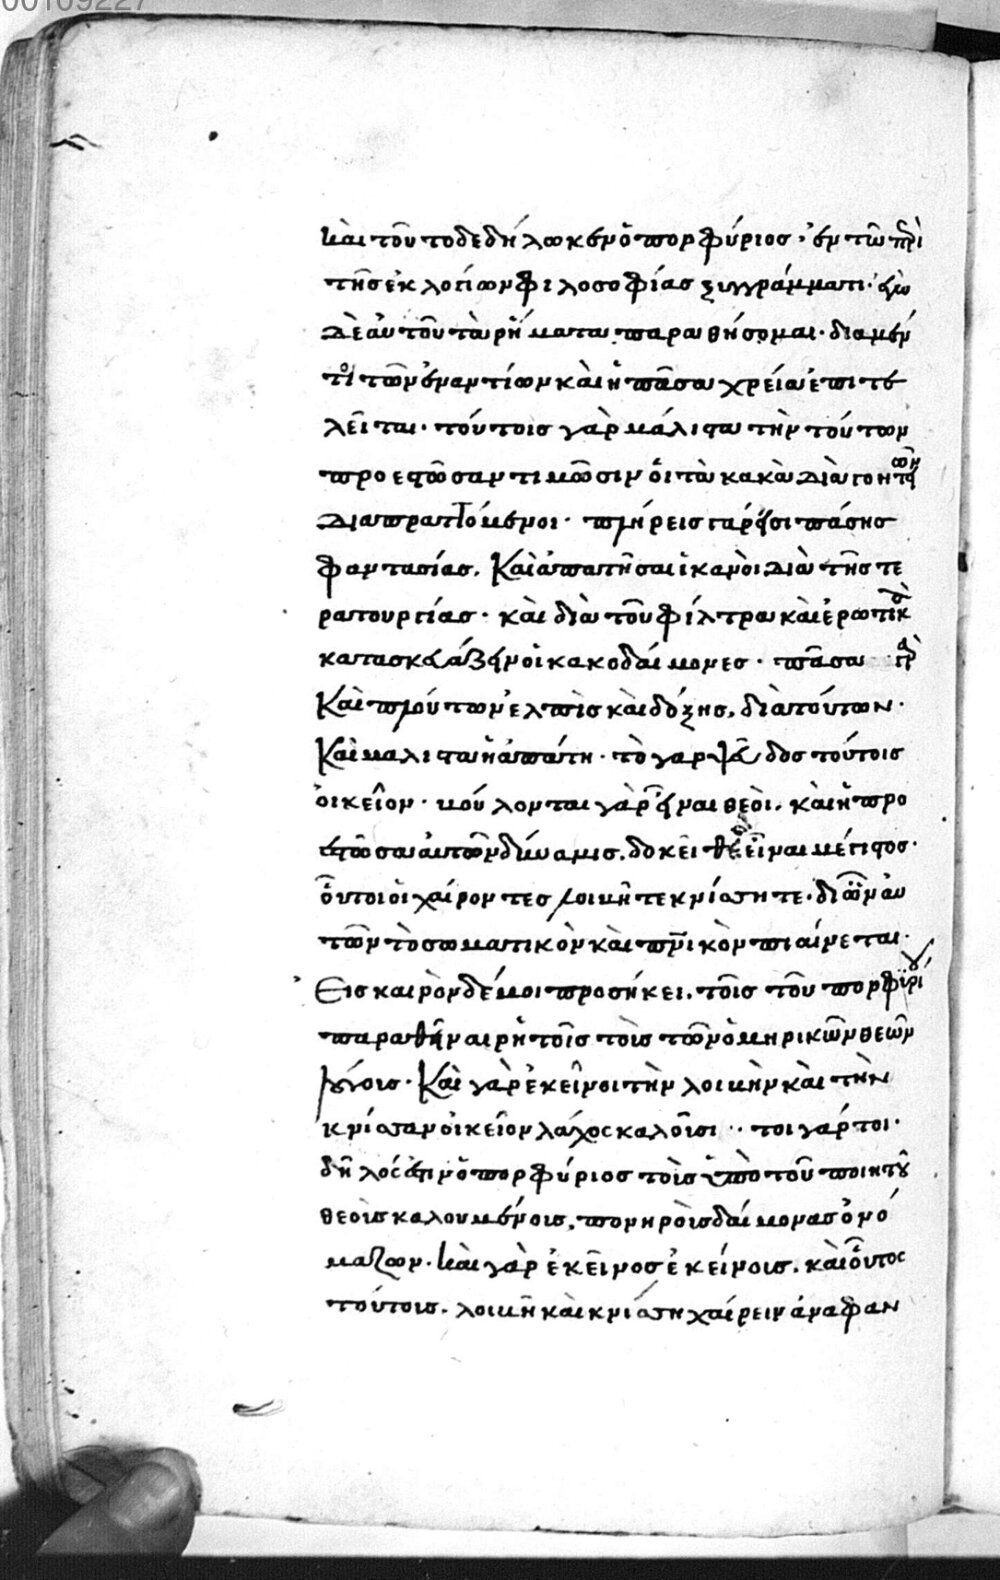 00109227
καὶ τοῦτο δεδήλωκεν ὁ πορφύριος· ἐν τῶ περὶ
τῆς ἐκ λογίων φιλοσοφίας ξυγγράμματι· ἐγὼ
δὲ αὐτοῦ τὰ ρήματα παραθήσομαι· διὰ μέν
τοι τῶν ἐναντίων καὶ ἡ πᾶσα χρεία ἐπιτε
λεῖται· τούτοις γὰρ μάλιστα τὴν τούτων
προεστῶσαν τιμῶσιν οἱ τὰ κακὰ διὰ γοητειῶν
διαπραττόμενοι· πλήρεις γάρ εἰσι πάσης
φαντασίας. Καὶ ἀπατῆσαι ἱκανοὶ διὰ τῆς τε
ρατουργίας· καὶ διὰ τοῦ φίλτρα καὶ ἐρωτικὰ
κατασκευάζειν οἱ κακοδαίμονες· πᾶσα γὰρ
Καὶ πλούτων ἐλπὶς καὶ δόξης, διὰ τούτων·
Καὶ μάλιστα ἡ ἀπάτη· τὸ γὰρ ψεῦδος τούτοις
οἰκεῖον· βούλονται γὰρ εἶναι θεοὶ. καὶ ἡ προ
εστῶσα αὐτῶν δύναμις, δοκεῖ θεὸς εἶναι μέγιστος·
οὗτοι οἱ χαίροντες λοιβῆ τε κνίσση τε· δι ὧν αὐ
τῶν τὸ σωματικὸν καὶ πνικὸν πιαίνεται·
Εἰς καιρὸν δέ μοι προσήκει. τοῖς τοῦ πορφυρίου
παραθεῖναι ρητοῖς τοῖς τῶν ὁμηρικῶν θεῶν
λόγοις· Καὶ γὰρ ἐκεῖνοι τὴν λοιβὴν καὶ τὴν
κνίσσαν οἰκεῖον λάχος καλοῦσι·· τοιγάρτοι·
δῆλός ἐστιν ὁ πορφύριος τοῖς ὑπὸ τοῦ ποιητοῦ
θεοῖς καλουμένοις, πονηροὶς δαίμονας ὀνό
μάζων· καὶ γὰρ ἐκεῖνος ἐκείνοις. καὶ οὗτος
τούτοις. λοιβῆ καὶ κνίσση χαίρειν ἀναφαν